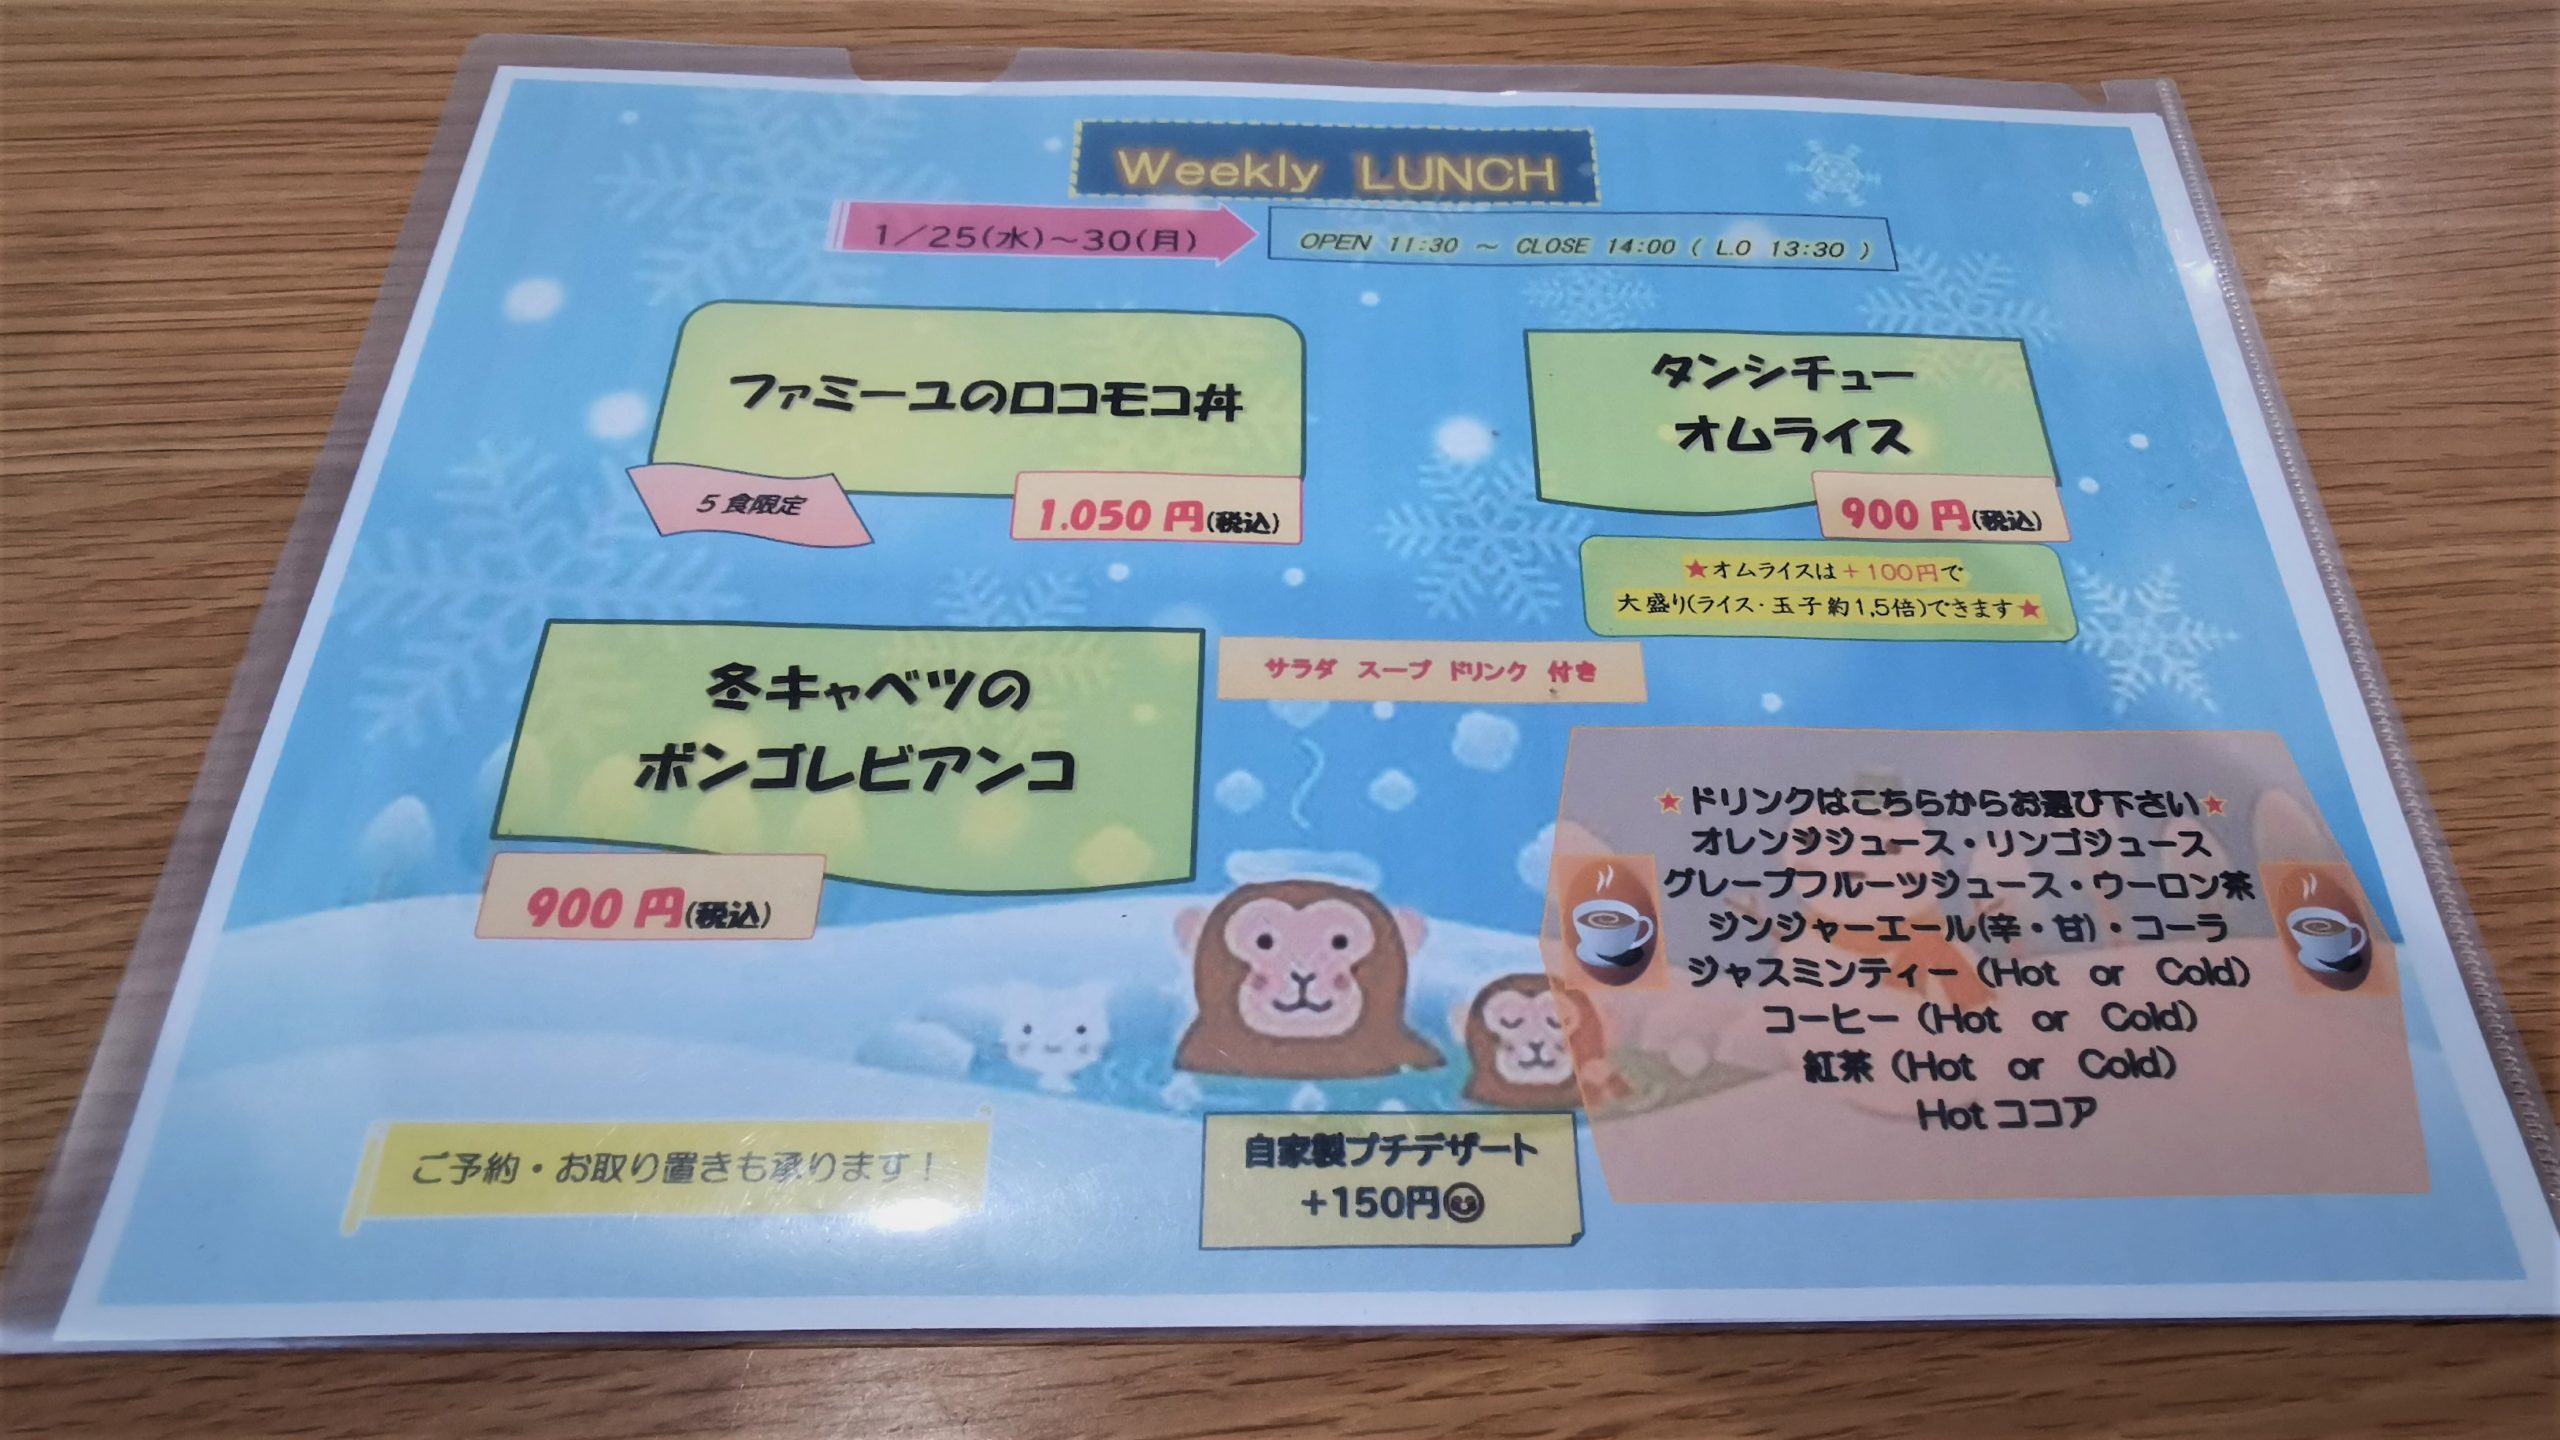 Weekly LUNCH
1／25(水)～30(月)
OPEN 11:30 ～ CLOSE 14:00 ( L.O 13:30 )
ファミーユのロコモコ丼
5食限定
1.050円(税込)
タンシチュー
オムライス
900円(税込)
★オムライスは+100円で
大盛り(ライス・玉子約1,5倍)できます★
冬キャベツの
ボンゴレビアンコ
900円(税込)
サラダ スープ ドリンク 付き
★ドリンクはこちらからお選び下さい★
オレンジジュース・リンゴジュース
グレープフルーツジュース・ウーロン茶
ジンジャーエール(辛・甘)・コーラ
ジャスミンティー（Hot or Cold）
コーヒー（Hot or Cold）
紅茶（Hot or Cold）
Hotココア
ご予約・お取り置きも承ります！
自家製プチデザート
+150円